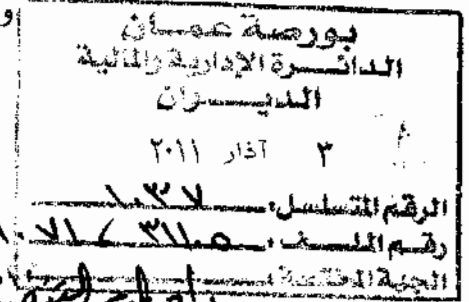 بورصة عمان
الدائرة الإدارية والمالية
الديوان
٣ آذار ٢٠١١
الرقم المتسلسل: ١٠٣٧
رقم الملف:
الجهة المختصة: